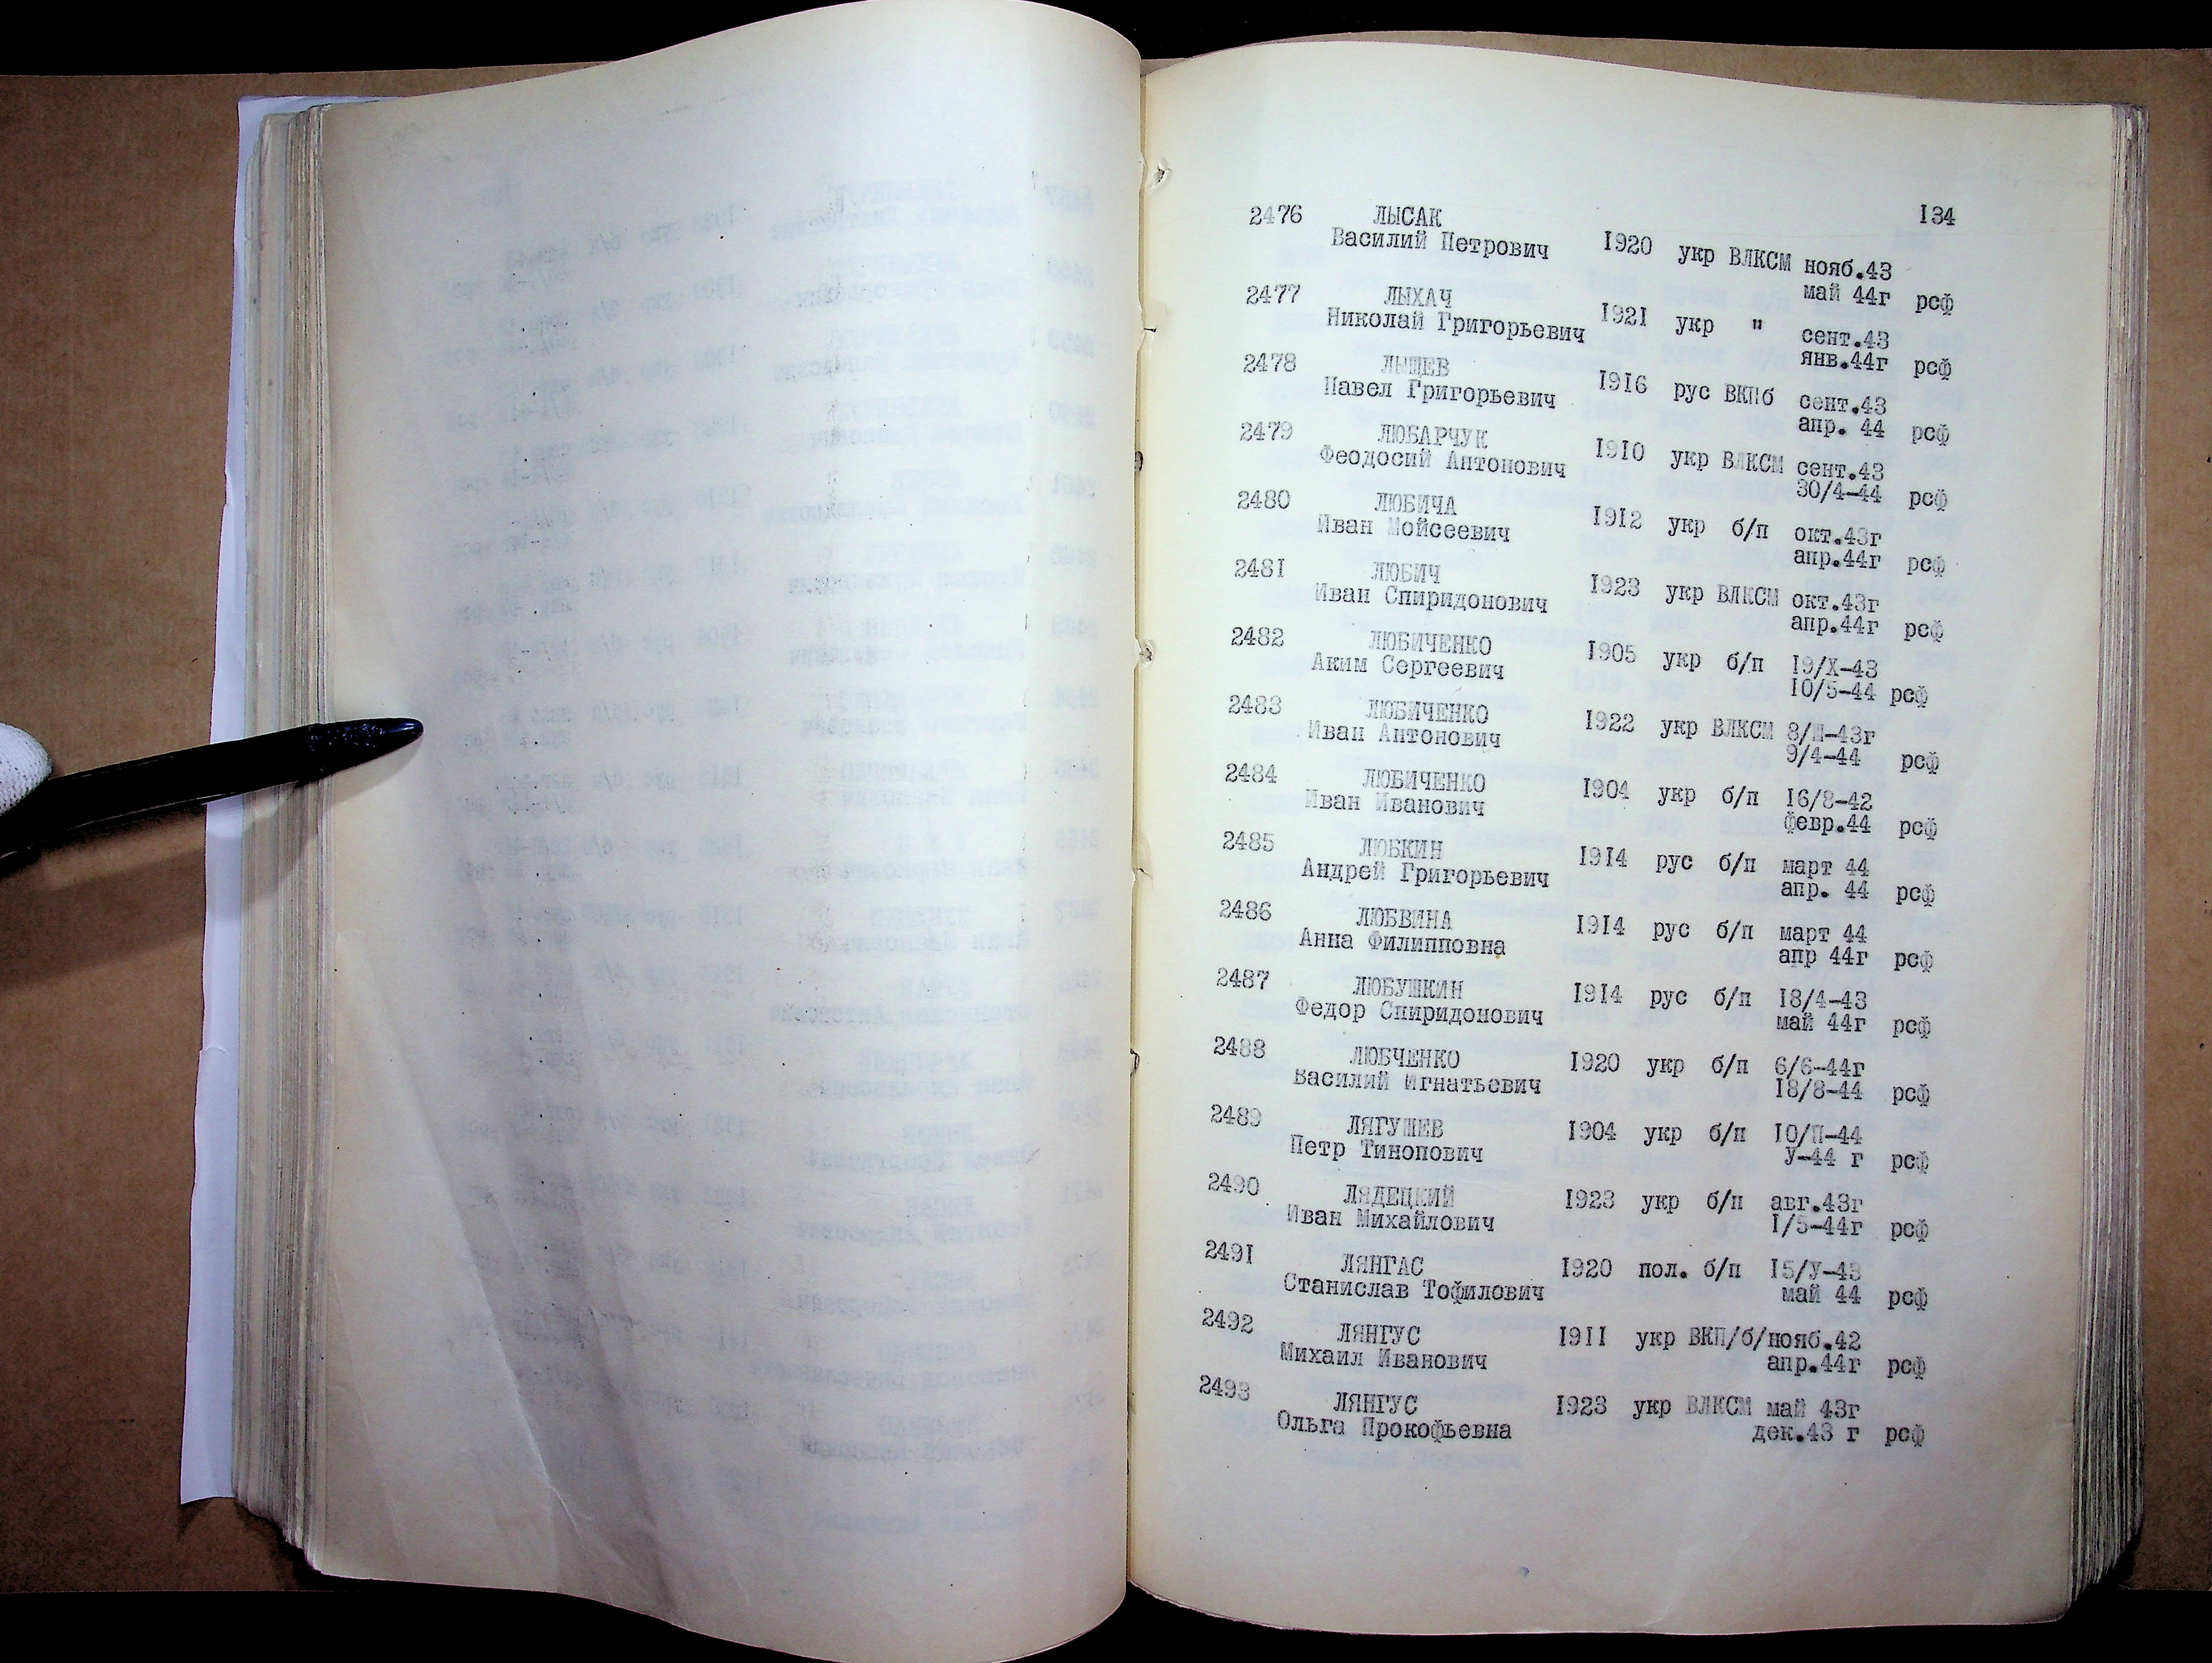 134
2476 ЛЫСАК
Василий Петрович 1920 укр ВЛКСМ нояб.43
май 44г рсф
2477 ЛЫХАЧ
Николай Григорьевич 1921 укр " сент.43
янв.44г рсф
2478 ЛЫЩЕВ
Павел Григорьевич 1916 рус ВКПб сент.43
апр. 44 рсф
2479 ЛЮБАРЧУК
Феодосий Антонович 1910 укр ВЛКСМ сент.43
30/4-44 рсф
2480 ЛЮБИЧА
Иван Мойсеевич 1912 укр б/п окт.43г
апр.44г рсф
2481 ЛЮБИЧ
Иван Спиридонович 1923 укр ВЛКСМ окт.43г
апр.44г рсф
2482 ЛЮБИЧЕНКО
Аким Сергеевич 1905 укр б/п 19/Х-43
10/5-44 рсф
2483 ЛЮБИЧЕНКО
Иван Антонович 1922 укр ВЛКСМ
9/4-44 рсф
2484 ЛЮБИЧЕНКО
Иван Иванович 1904 укр б/п 16/8-42
февр.44 рсф
2485 ЛЮБКИН
Андрей Григорьевич 1914 рус б/п март 44
апр. 44 рсф
2486 ЛЮБВИНА
Анна Филипповна 1914 рус б/п март 44
апр 44г рсф
2487 ЛЮБУШКИН
Федор Спиридонович 1914 рус б/п 18/4-43
май 44г рсф
2488 ЛЮБЧЕНКО 1920 укр б/п 6/6-44г
Василий Игнатьевич 18/8-44 рсф
2489 ЛЯГУШЕВ 1904 укр б/п 10/П-44
Петр Тинопович У-44 г рсф
2490 ЛЯДЕЦКИЙ 1923 укр б/п авг.43г
Иван Михайлович 1/5-44г рсф
2491 ЛЯНГАС 1920 пол. б/п 15/У-43
Станислав Тофилович май 44 рсф
2492 ЛЯНГУС 1911 укр ВКП/б/нояб.42
Михаил Иванович апр.44г рсф
2493 ЛЯНГУС 1923 укр ВЛКСМ май 43г
Ольга Прокофьевна дек.43 г рсф